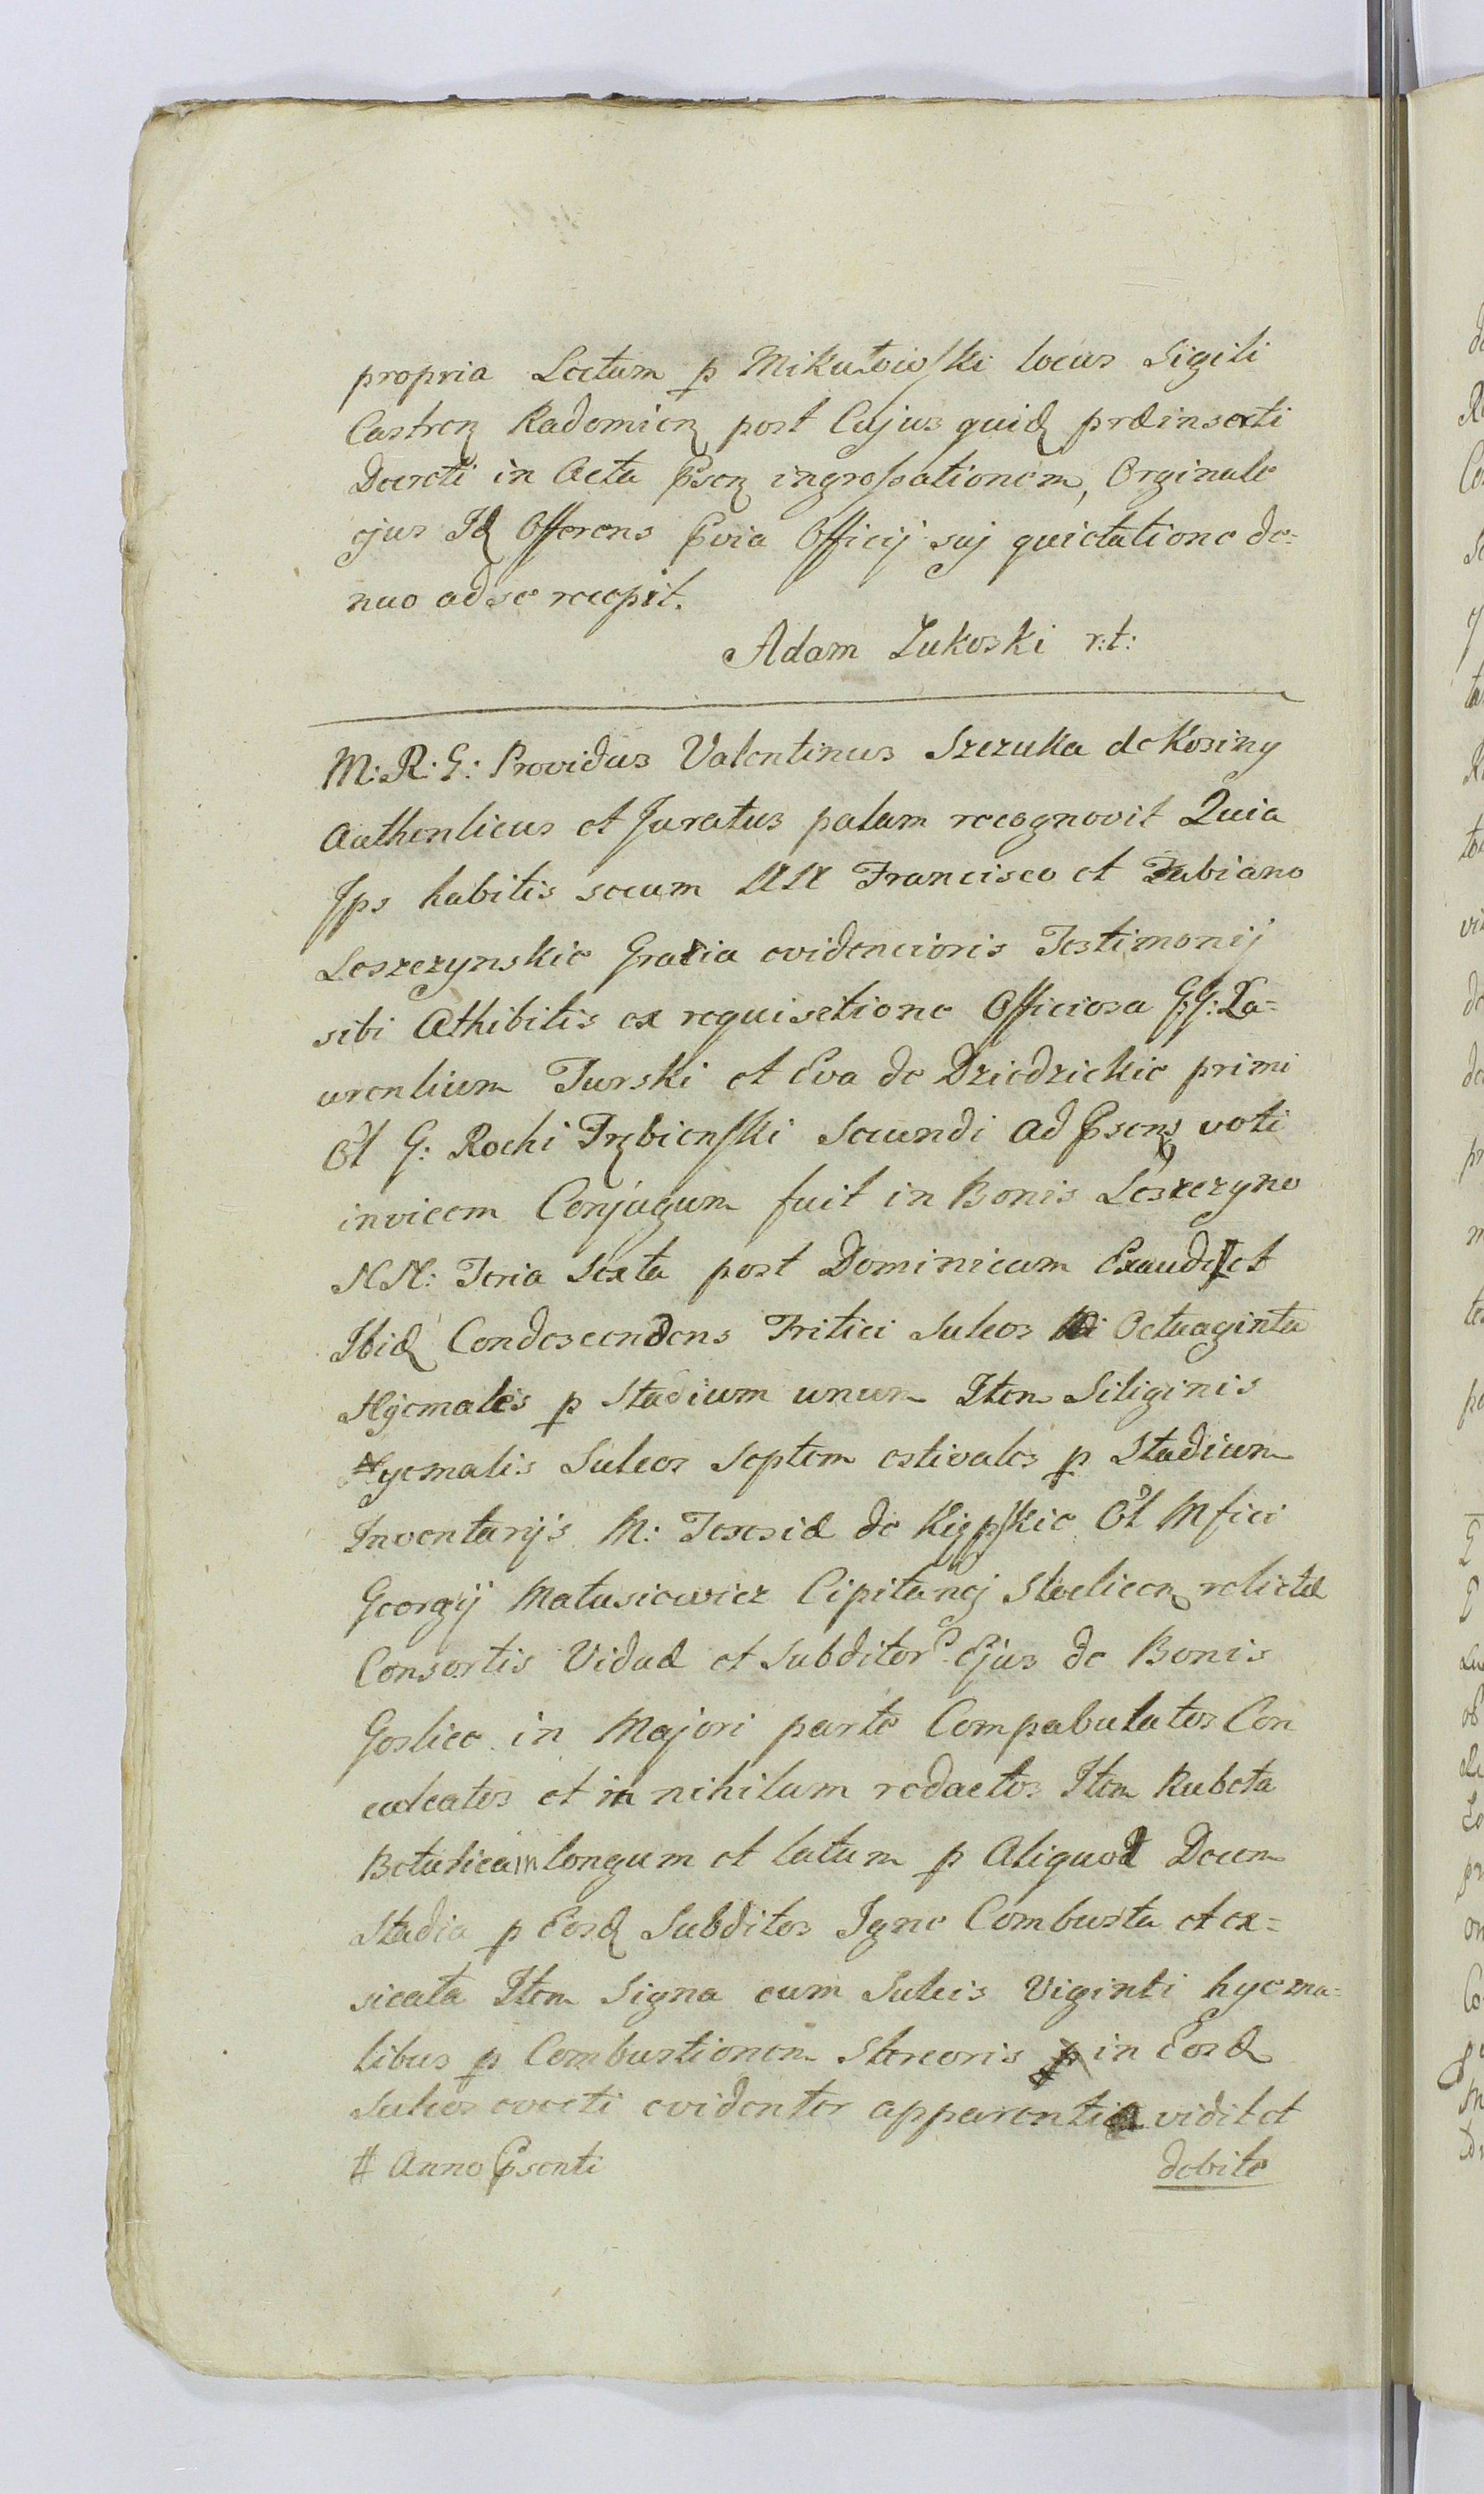 propria Lectum p Mikułowski locus Sigili
Castren Radomien post Cujus quid præinserti
Decreti in Acta Psen ingrossationem, Orginale
ejus Id Offerens Pvia Officij suj quietatione de=
nuo ad se recepit.
Adam Łukoski r:t:
M: R: G: Providus Valentinus Szczuka de Kosiny
Authenticus et Juratus palam recognovit Quia
Ips habitis secum NN Francisco et Fabiano
Leszczynskie Gratia evidencioris Testimonij
sibi Athibitis ex requisitione Officiosa G:G: La=
urentium Turski et Eva de Dziedzickie primi
Ol G: Rochi Trębienski Secundi ad Psens voti
invicem Conjugum fuit in Bonis Leszczyno
NN: Feria Sexta post Dominicam Exaudi # et
Ibid Condescendens Tritici Sulcos Octuaginta
Hyemales p Stadium unum Item Siliginis
Hyemalis Sulcos Septem estivales p Stadium
Inventarijs M: Teresiæ de Ol Mfici
Georgij Matusiewicz Cipitanej Stoelicen relictæ
Consortis Viduæ et Subditor Ejus de Bonis
Goslice in Majori parte Compabulatos Con
culcatos et in nihilum redactos Item Rubeta
Betulica in longum et latum p Aliquod Decem
Stadia p Eosd Subditos Igne Combusta et ex=
sicata Item Signa cum Sulcis Viginti hyema=
libus p Combustionem Stercoris in Eosd
Sulcos evecti evidenter apparentia vidit et
# Anno Psenti
debite